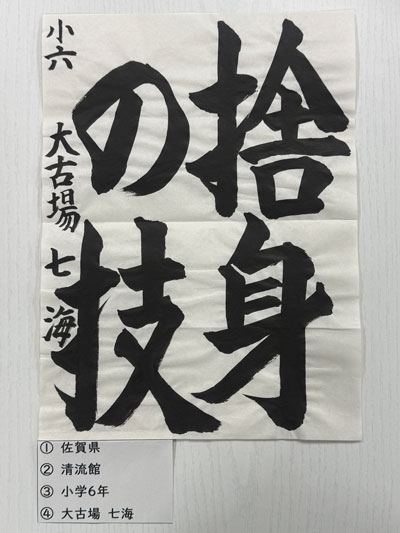 捨身
の技
小六 大古場 七海
① 佐賀県
② 清流館
③ 小学6年
④ 大古場 七海